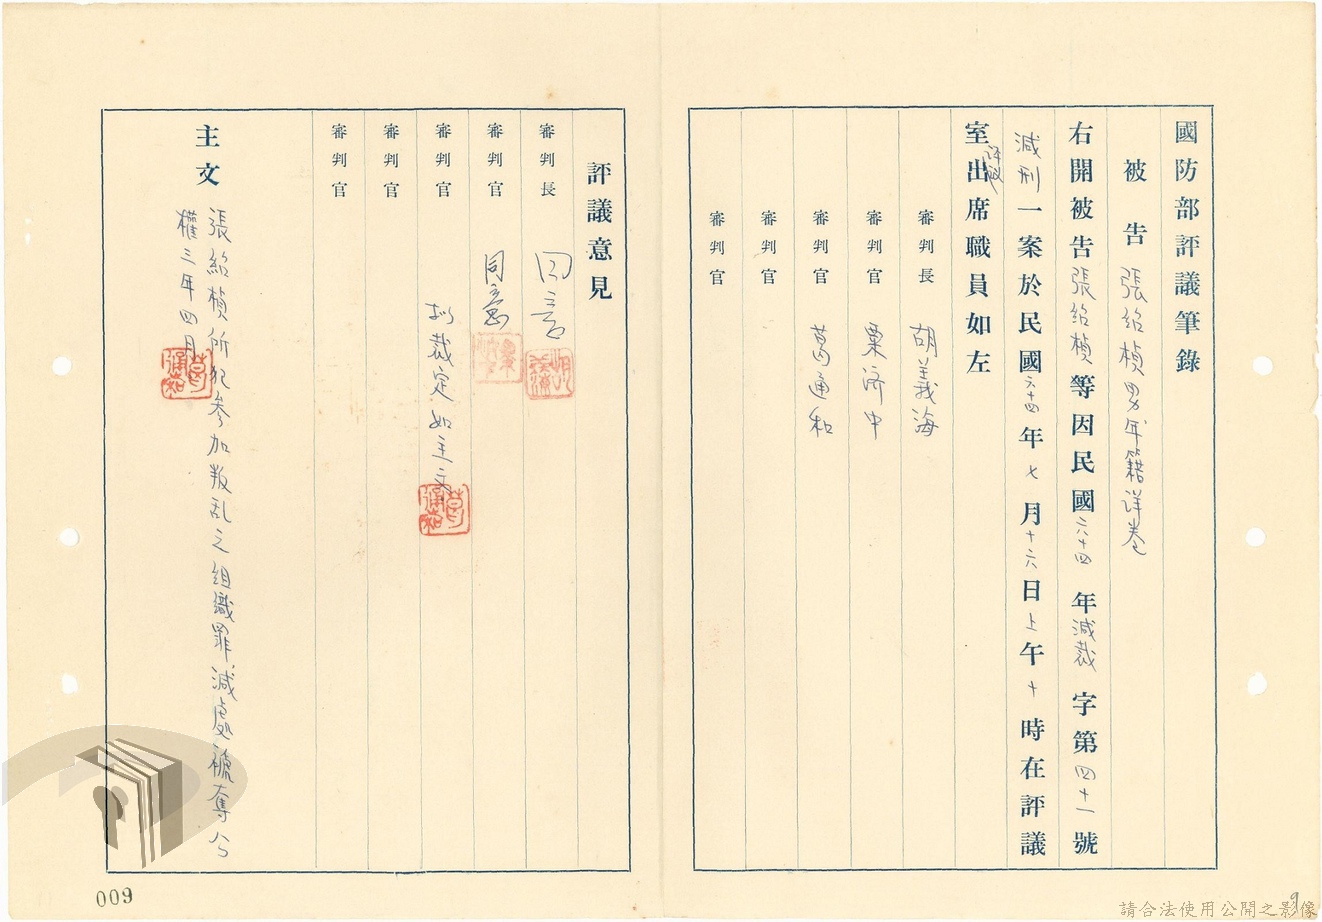 國防部評議筆錄
被告張紹楨男年籍詳卷
右開被告張紹楨等因民國六十四年減裁字第四十一號
減刑一案於民國六十四年七月十六日上午十時在評議
室出席職員如左
評議
審判長 胡義海
審判官 栗濟中
審判官 葛通和
審判官
審判官
評議意見
審判長 同意
審判官 同意
審判官 擬裁定如主文
審判官
審判官
主文
張紹楨所犯參加叛乱之組織罪減處褫奪公
權三年四月
葛通和
葛通和
009
9
請合法使用公開之影像